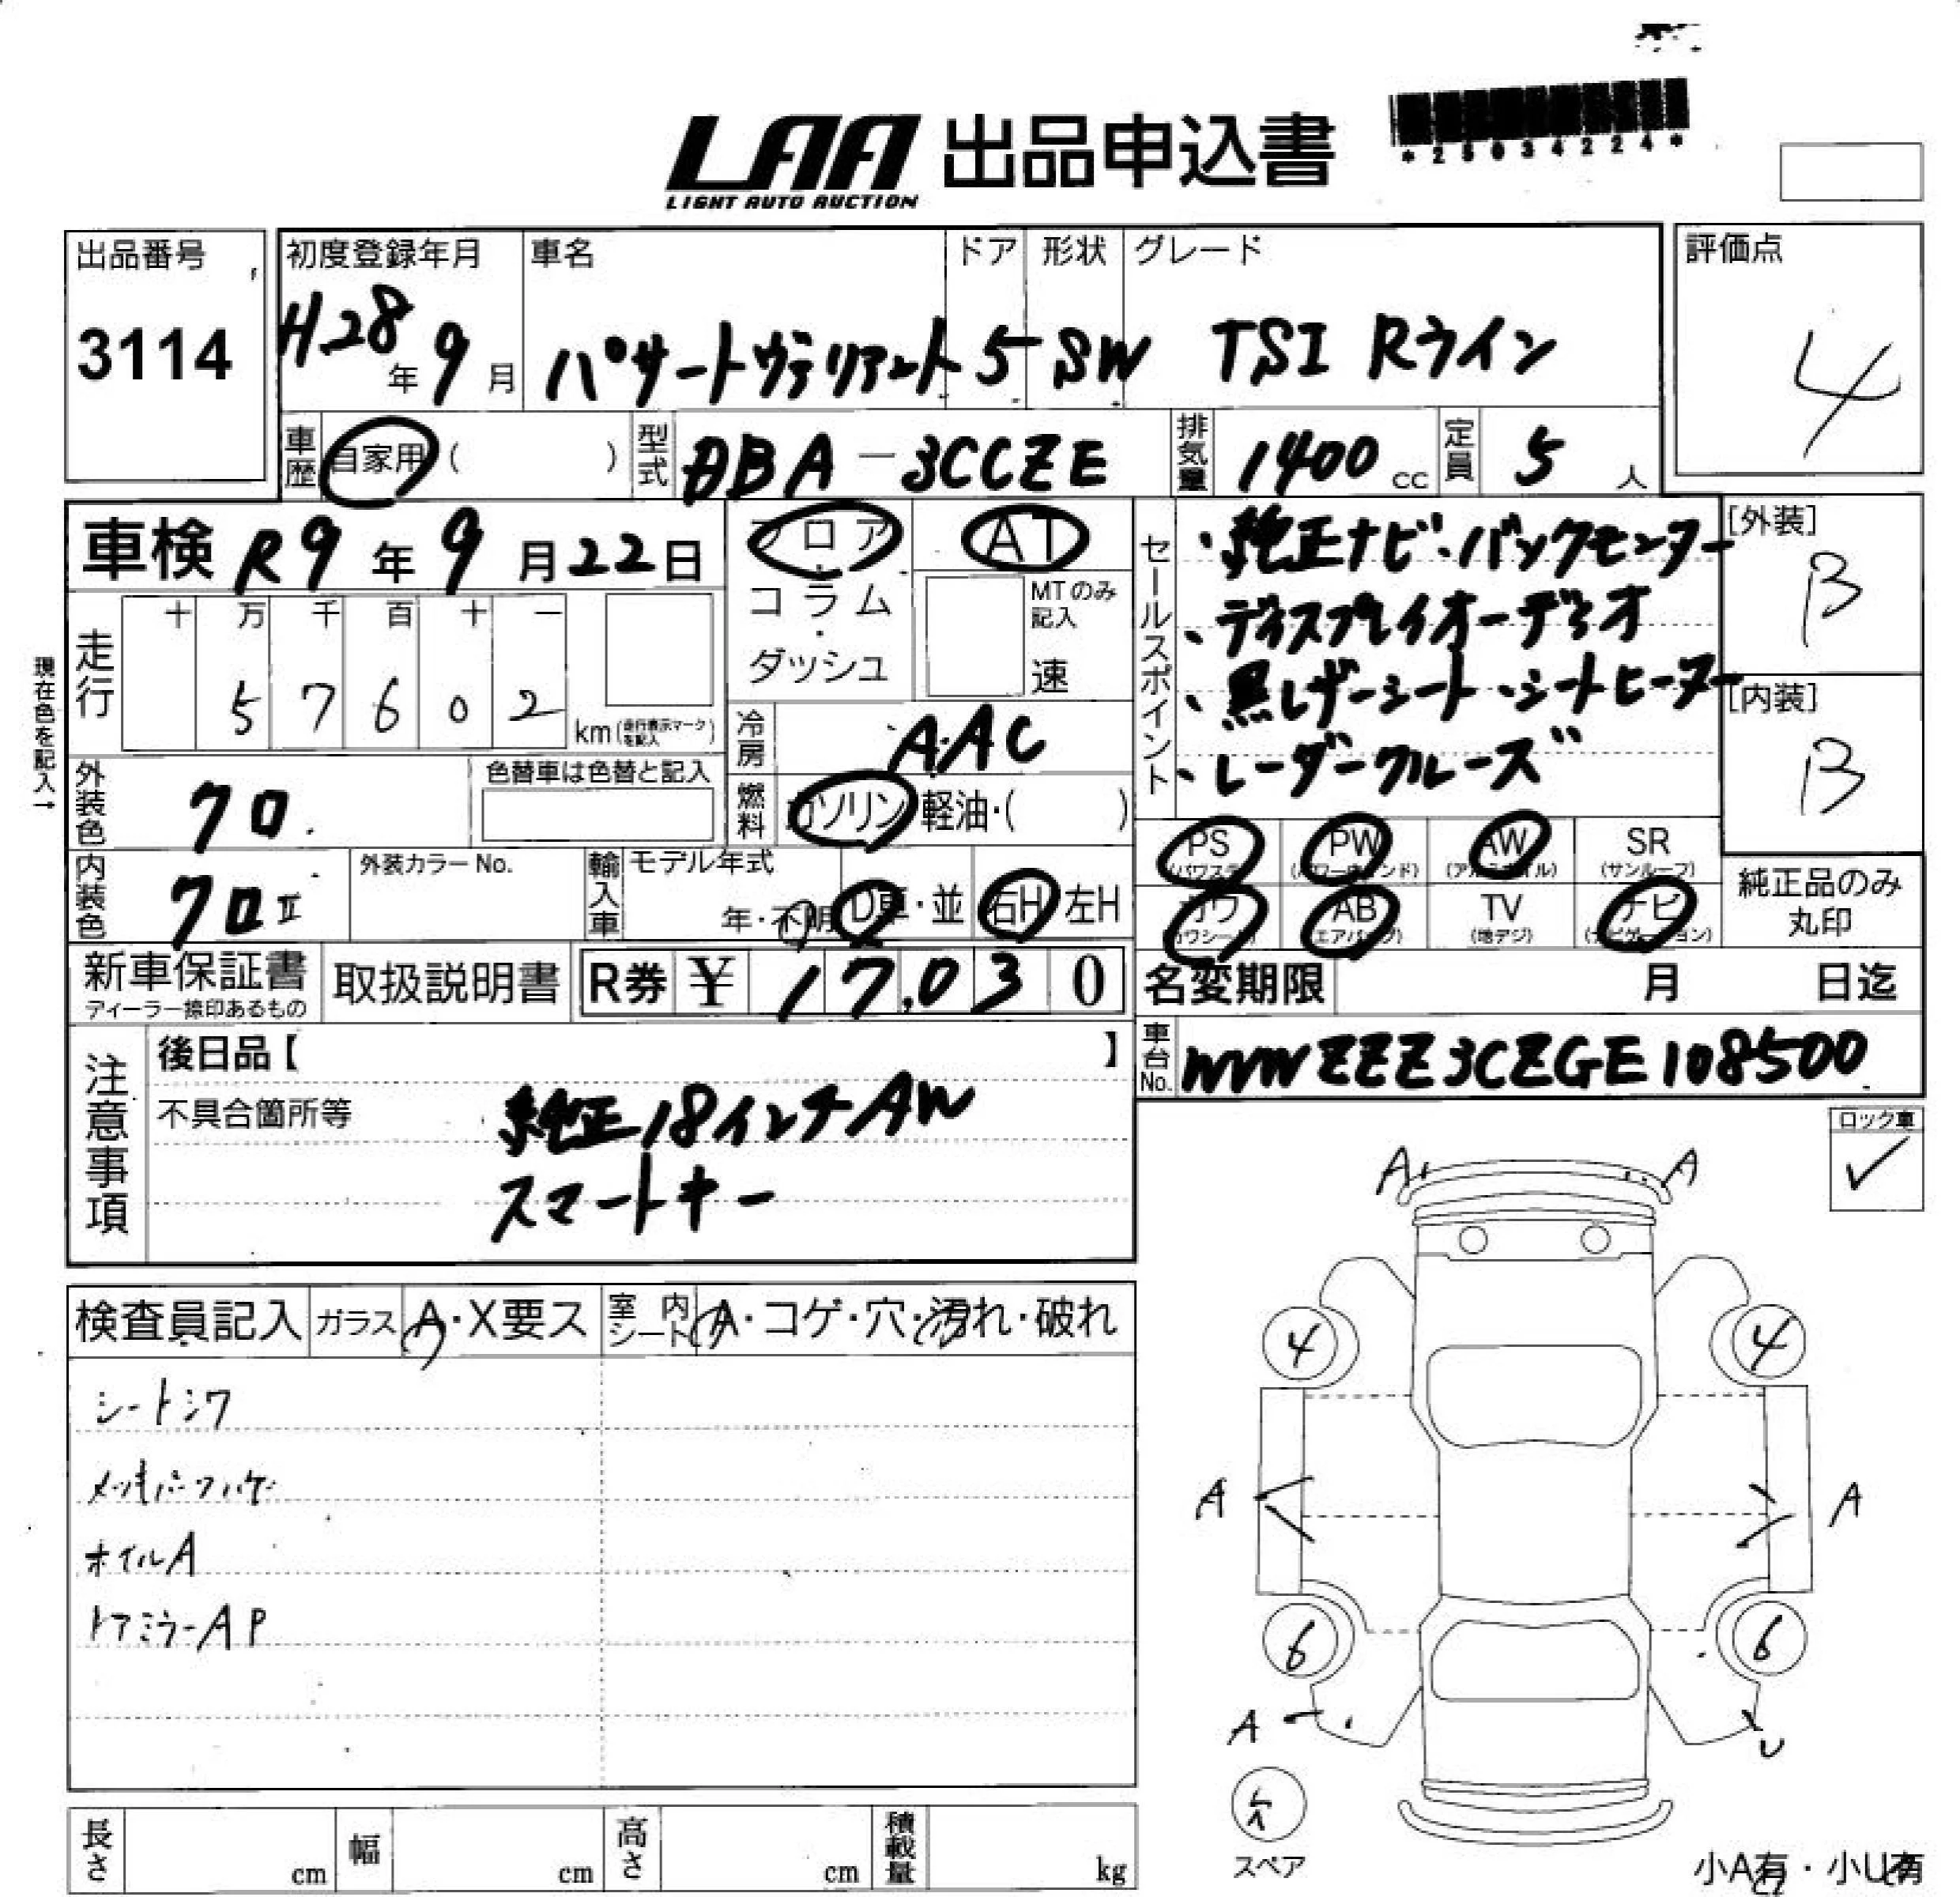 *25034224*
LAA 出品申込書
LIGHT AUTO AUCTION
出品番号 初度登録年月 車名 ドア 形状 グレード 評価点
3114 H28年 9月 パサートヴァリアント 5 SW TSI Rライン 4
車歴 自家用 ( ) 型式 DBA-3CCZE 排気量 1400 cc 定員 5 人
車検 R9年 9月22日 フロア・コラム・ダッシュ AT
MTのみ記入 速
セールスポイント
・純正ナビ、バックモニター
、ディスプレイオーディオ
、黒レザーシート、シートヒーター
、レーダークルーズ
[外装] B
[内装] B
現在色を記入→
走行 十 万 千 百 十 一
5 7 6 0 2 km(走行表示マークを記入)
冷房 AAC
外装色 クロ. 色替車は色替と記入
燃料 ガソリン・軽油・( )
内装色 クロII 外装カラーNo. 輸入車 モデル年式 年・不明 D車・並 右H 左H
PS (パワステ) PW (パワーウィンド) AW (アルミホイル) SR (サンルーフ)
カワ (カワシート) AB (エアバッグ) TV (地デジ) ナビ (ナビゲーション)
純正品のみ丸印
新車保証書 ディーラー捺印あるもの 取扱説明書 R券 ¥ 17,030
名変期限 月 日迄
車台No. WVWZZZ3CZGE108500
注意事項
後日品【 】
不具合箇所等
純正18インチAW
スマートキー
ロック車 ✓
検査員記入 ガラス A・X要ス 室内シート A・コゲ・穴・汚れ・破れ
シートシワ
ホイルA
ドアミラーAP
A A
4 4
A A
6 6
A U
スペア
長さ cm 幅 cm 高さ cm 積載量 kg
小A有・小U有